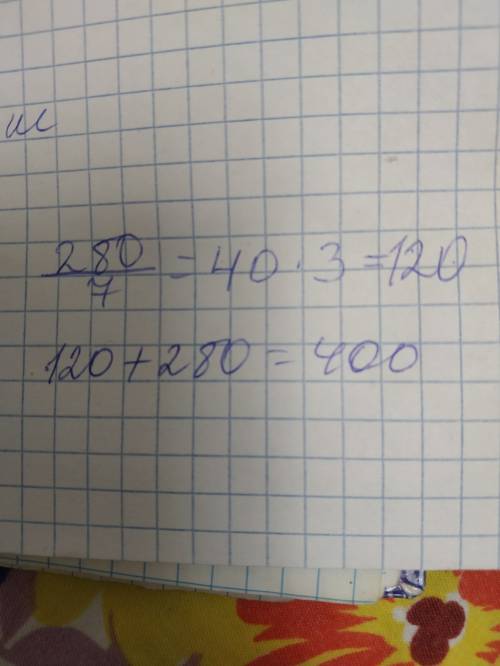 ш
280/7 = 40 · 3 = 120
120 + 280 = 400